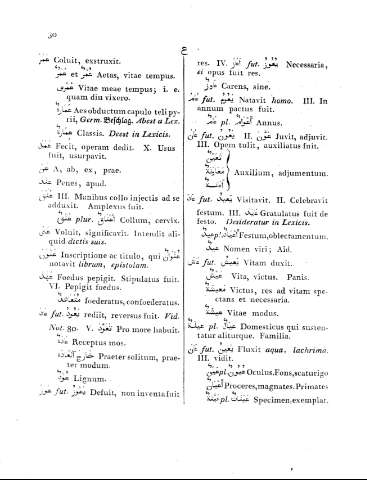 90
ع
عَمَرَ Coluit, exstruxit.
عُمْر et عَمْر Aetas, vitae tempus.
عَمْرِى Vitae meae tempus; i. e.
quam diu vixero.
Aes obductum capulo teli py-
rii, Germ. Beschlag. Abest a Lex.
عِمَارَة Classis. Deest in Lexicis.
عَمِلَ Fecit, operam dedit. X. Usus
fuit, usurpavit.
عَنْ A, ab, ex, prae.
عِنْدَ Penes, apud.
عنق III. Manibus collo injectis ad se
adduxit. Amplexus fuit.
عُنُق plur. أَعْنَاق Collum, cervix.
عَنَى Voluit, significavit. Intendit ali-
quid dictis suis.
عنون Inscriptione ac titulo, qui عُنْوَان
notavit librum, epistolam.
عَهِدَ Foedus pepigit. Stipulatus fuit.
VI. Pepigit foedus.
مُتَعَاهِد foederatus, confoederatus.
عَادَ fut. يَعُودُ rediit, reversus fuit. Vid.
Not. 80. V. تَعَوَّدَ Pro more habuit.
عَادَة Receptus mos.
خَارِج العَادَة Praeter solitum, prae-
ter modum.
عُود Lignum.
عَوِزَ fut. يَعْوَزُ Defuit, non inventa fuit
res. IV. أَعْوَزَ fut. يُعْوِزُ Necessaria,
ei opus fuit res.
عَاوِز Carens, sine.
عَامَ fut. يَعُومُ Natavit homo. III. In
annum pactus fuit.
عَام pl. أَعْوَام Annus.
عَانَ fut. يَعُونُ II. عَوَّنَ Juvit, adjuvit.
III. Opem tulit, auxiliatus fuit.
مَعُونَة
Auxilium, adjumentum.
عَادَ fut. يَعِيدُ Visitavit. II. Celebravit
festum. III. عَايَدَ Gratulatus fuit de
festo. Desideratur in Lexicis.
عِيد pl. أَعْيَاد Festum, oblectamentum.
عيد Nomen viri; Aid.
عَاشَ fut. يَعِيشُ Vitam duxit.
عَيْش Vita, victus. Panis.
مَعِيشَة Victus, res ad vitam spe-
ctans et necessaria.
عِيشَة Vitae modus.
عَيْلَة pl. عِيَال Domesticus qui susten-
tatur aliturque. Familia.
عَانَ fut. يَعِينُ Fluxit aqua, lachrima.
III. vidit.
عَيْن pl. عُيُون Oculus. Fons, scaturigo
أَعْيَان Proceres, magnates. Primates
عَيِّنَة pl. عَيِّنَات Specimen, exemplar.